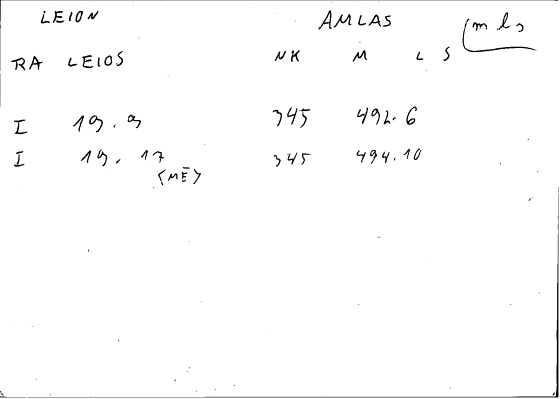 LEION AMLAS (mls
RA LEIOS NK M L S
I 19.9 345 492.6
I 19.17 345 494.10
<MĒ>